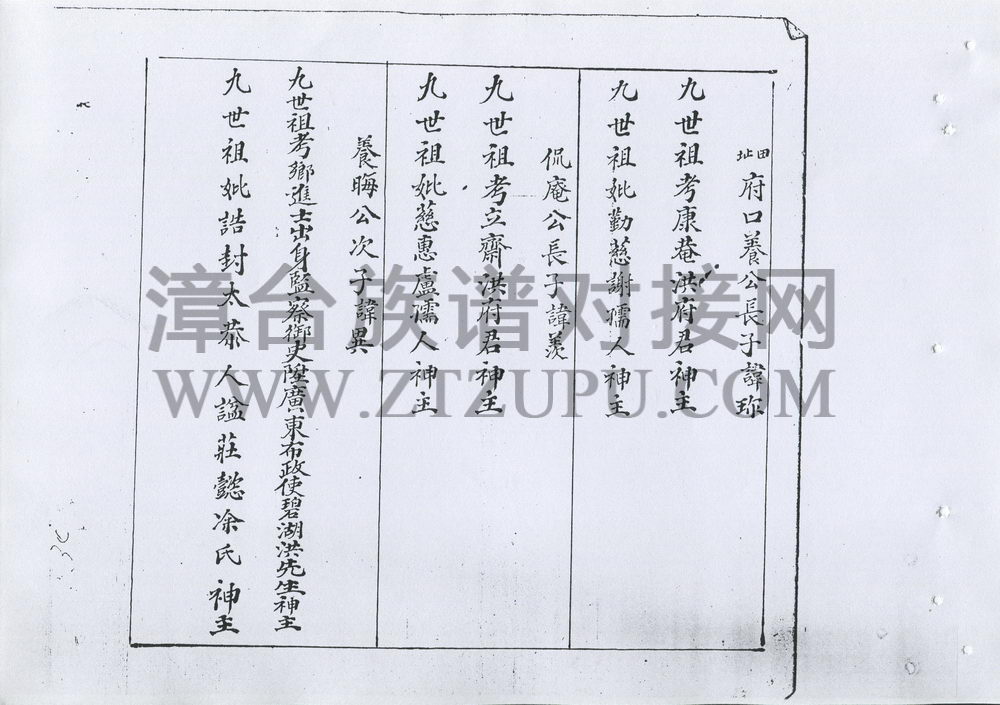 田址府口養公長子諱珎
九世祖考康菴洪府君神主
九世祖妣勤慈謝孺人神主
侃庵公長子諱羨
九世祖考立齋洪府君神主
九世祖妣慈惠盧孺人神主
養晦公次子諱異
九世祖考鄉進士出身監察御史陞廣東布政使碧湖洪先生神主
九世祖妣誥封太恭人謚莊懿凃氏神主
漳台族谱对接网
WWW.ZTZUPU.COM